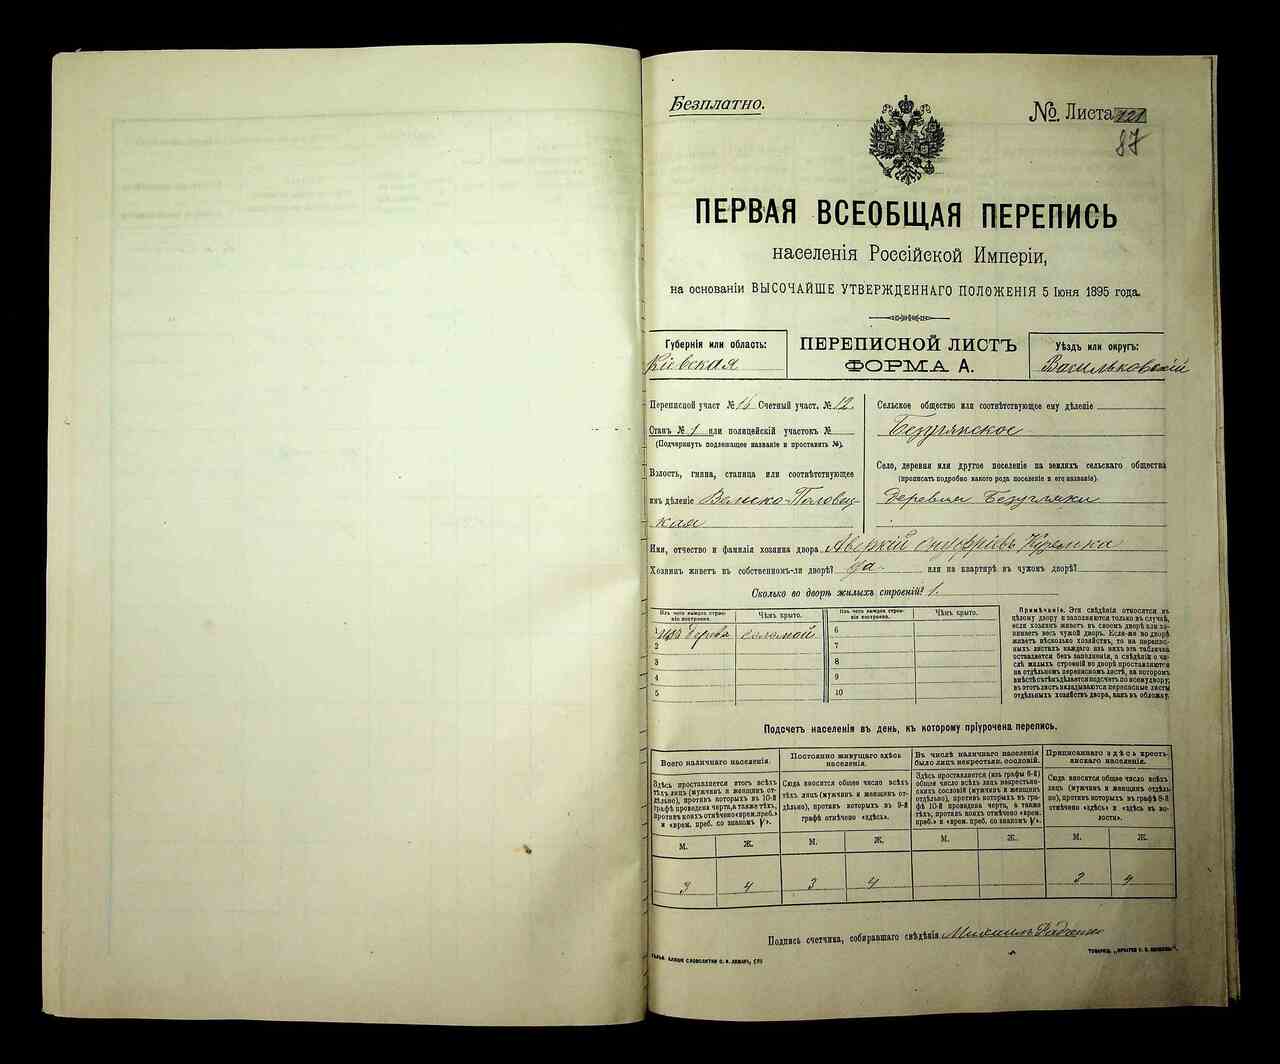 Безплатно.
№ Листа 121
87
ПЕРВАЯ ВСЕОБЩАЯ ПЕРЕПИСЬ
населенія Россійской Имперіи,
на основаніи ВЫСОЧАЙШЕ УТВЕРЖДЕННАГО ПОЛОЖЕНІЯ 5 Іюня 1895 года.
Губернія или область:
Кіевская
ПЕРЕПИСНОЙ ЛИСТЪ
ФОРМА А.
Уѣздъ или округъ:
Васильковскій
Переписной участ № 16 Счетный участ. № 12.
Станъ № 1 или полицейскій участокъ №
(Подчеркнуть подлежащее названіе и проставить №).
Волость, гмина, станица или соотвѣтствующее
имъ дѣленіе Велико-Половец-
кая
Сельское общество или соотвѣтствующее ему дѣленіе
Безуглякское
Село, деревня или другое поселеніе на земляхъ сельскаго общества
(прописать подробно какого рода поселеніе и его названіе).
Деревня Безугляки
Имя, отчество и фамилія хозяина двора Аверкій Онуфріевъ
Хозяинъ живетъ въ собственномъ-ли дворѣ? да. или на квартирѣ въ чужомъ дворѣ?
Сколько во дворѣ жилыхъ строеній? 1.
Изъ чего каждое строе-
ніе построено.
Чѣмъ крыто.
Изъ чего каждое строе-
ніе построено.
Чѣмъ крыто.
1 изъ дерева соломой 6
2 7
3 8
4 9
5 10
Примѣчаніе. Эти свѣдѣнія относятся къ
цѣлому двору и заполняются только въ случаѣ,
если хозяинъ живетъ въ своемъ дворѣ или за-
нимаетъ весь чужой дворъ. Если-же во дворѣ
живетъ нѣсколько хозяйствъ, то на перепис-
ныхъ листахъ каждаго изъ нихъ эта табличка
оставляется безъ заполненія, а свѣдѣнія о чи-
слѣ жилыхъ строеній во дворѣ проставляются
на отдѣльномъ переписномъ листѣ, на которомъ
вмѣстѣ съ тѣмъ дѣлается подсчетъ по всему двору;
въ этотъ листъ вкладываются переписные листы
отдѣльныхъ хозяйствъ двора, какъ въ обложку.
Подсчетъ населенія въ день, къ которому пріурочена перепись.
Всего наличнаго населенія.
Здѣсь проставляется итогъ всѣхъ
тѣхъ лицъ (мужчинъ и женщинъ от-
дѣльно), противъ которыхъ въ 10-й
графѣ проведена черта, а также тѣхъ,
противъ коихъ отмѣчено «врем. преб.»
и «врем. преб. со знакомъ V».
Постоянно живущаго здѣсь
населенія.
Сюда вносится общее число всѣхъ
тѣхъ лицъ (мужчинъ и женщинъ от-
дѣльно), противъ которыхъ въ 9-й
графѣ отмѣчено «здѣсь».
Въ числѣ наличнаго населенія
было лицъ некрестьян. сословій.
Здѣсь проставляется (изъ графы 6-й)
общее число всѣхъ лицъ некрестьян-
скихъ сословій (мужчинъ и женщинъ
отдѣльно), противъ которыхъ въ гра-
фѣ 10-й проведена черта, а также
тѣхъ, противъ коихъ отмѣчено «врем.
преб.» и «врем. преб. со знакомъ V».
Приписаннаго здѣсь кресть-
янскаго населенія.
Сюда вносится общее число всѣхъ
лицъ (мужчинъ и женщинъ отдѣль-
но), противъ которыхъ въ графѣ 8-й
отмѣчено «здѣсь» и «здѣсь въ во-
лости».
М. Ж. М. Ж. М. Ж. М. Ж.
3 4 3 4 3 4
Подпись счетчика, собиравшаго свѣдѣнія Михаилъ